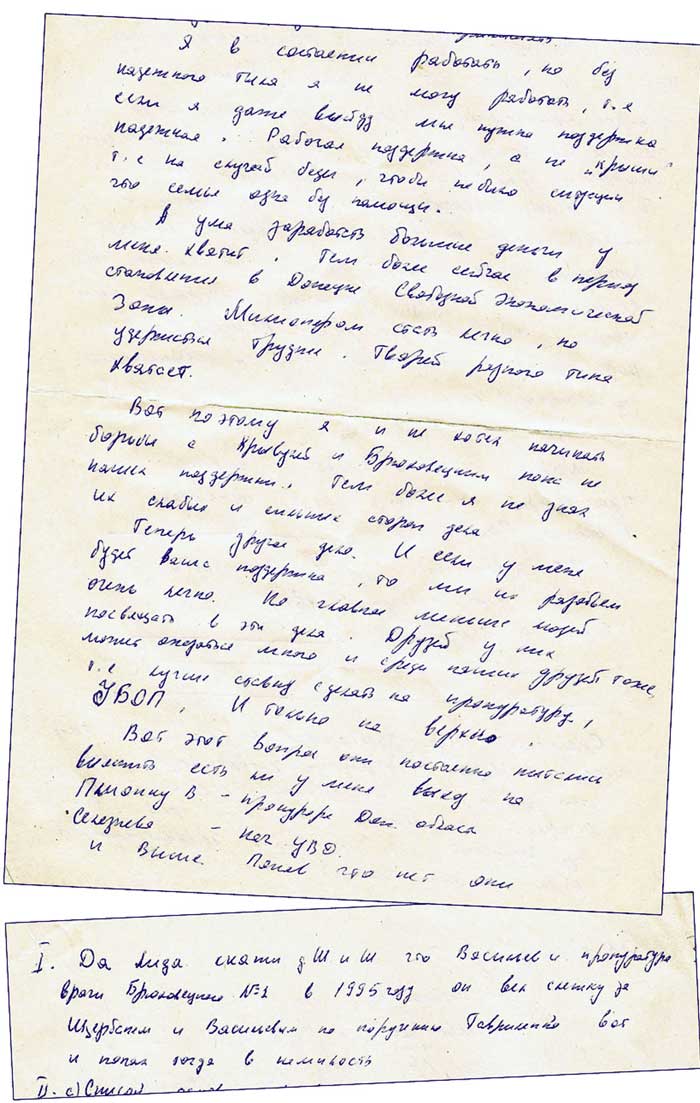 Я в состоянии работать, но без
надежного тыла я не могу работать, т.е
если я даже выйду мне нужна поддержка
надежная. Рабочая поддержка, а не "крыши"
т.е на случай беды, чтобы не было ситуации
что семья одна без помощи.
А ума заработать большие деньги у
меня хватит. Тем более сейчас в период
становления в Донецке Свободной Экономической
Зоны. Миллионером стать легко, но
удержаться трудно. Тварей разного типа
хватает.
Вот поэтому я и не хотел начинать
борьбы с Кривузей и Брюховецким пока не
нашел поддержки. Тем более я не знал
их слабых и сильных сторон дела
Теперь другое дело. И если у меня
будет ваша поддержка, то мы их разобьем
очень легко. Но главное меньше людей
посвящать в эти дела. Друзей у них
может оказаться много и среди наших друзей тоже,
т.е лучше ставку сделать на прокуратуру,
УБОП, И только на верхню.
Вот этот вопрос они постоянно пытались
выяснить есть ли у меня выход на
Пшонку В - прокурора Дон. област
Селезнева - нач УВД.
и Выше. Поняв что нет они
I. Да Лида скажи д Ш и Ш что Васильев и прокуратура
враги Брюховецкого №1 в 1995 году он вел слежку за
Щербатем и Васильевым по поручению Гавриленко вот
и попал тогда в немилость
II. а) Список